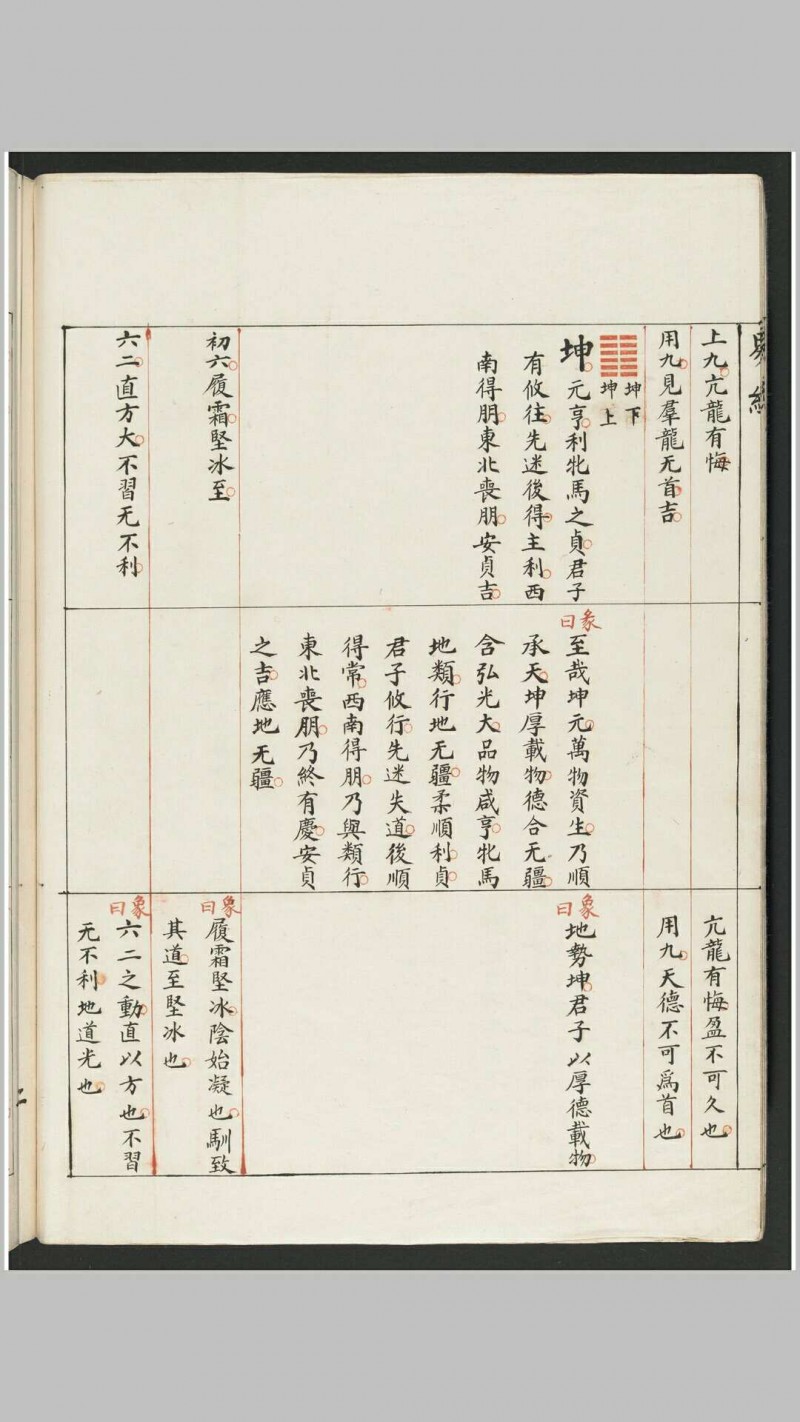 易經
上九亢龍有悔
用九見羣龍无首吉
坤下
坤上
坤元亨利牝馬之貞君子
有攸往先迷後得主利西
南得朋東北喪朋安貞吉
初六履霜堅冰至
六二直方大不習无不利
彖曰
至哉坤元萬物資生乃順
承天坤厚載物德合无疆
含弘光大品物咸亨牝馬
地類行地无疆柔順利貞
君子攸行先迷失道後順
得常西南得朋乃與類行
東北喪朋乃終有慶安貞
之吉應地无疆
亢龍有悔盈不可久也
用九天德不可爲首也
象曰
地勢坤君子以厚德載物
象曰
履霜堅冰陰始凝也馴致
其道至堅冰也
象曰
六二之動直以方也不習
无不利地道光也